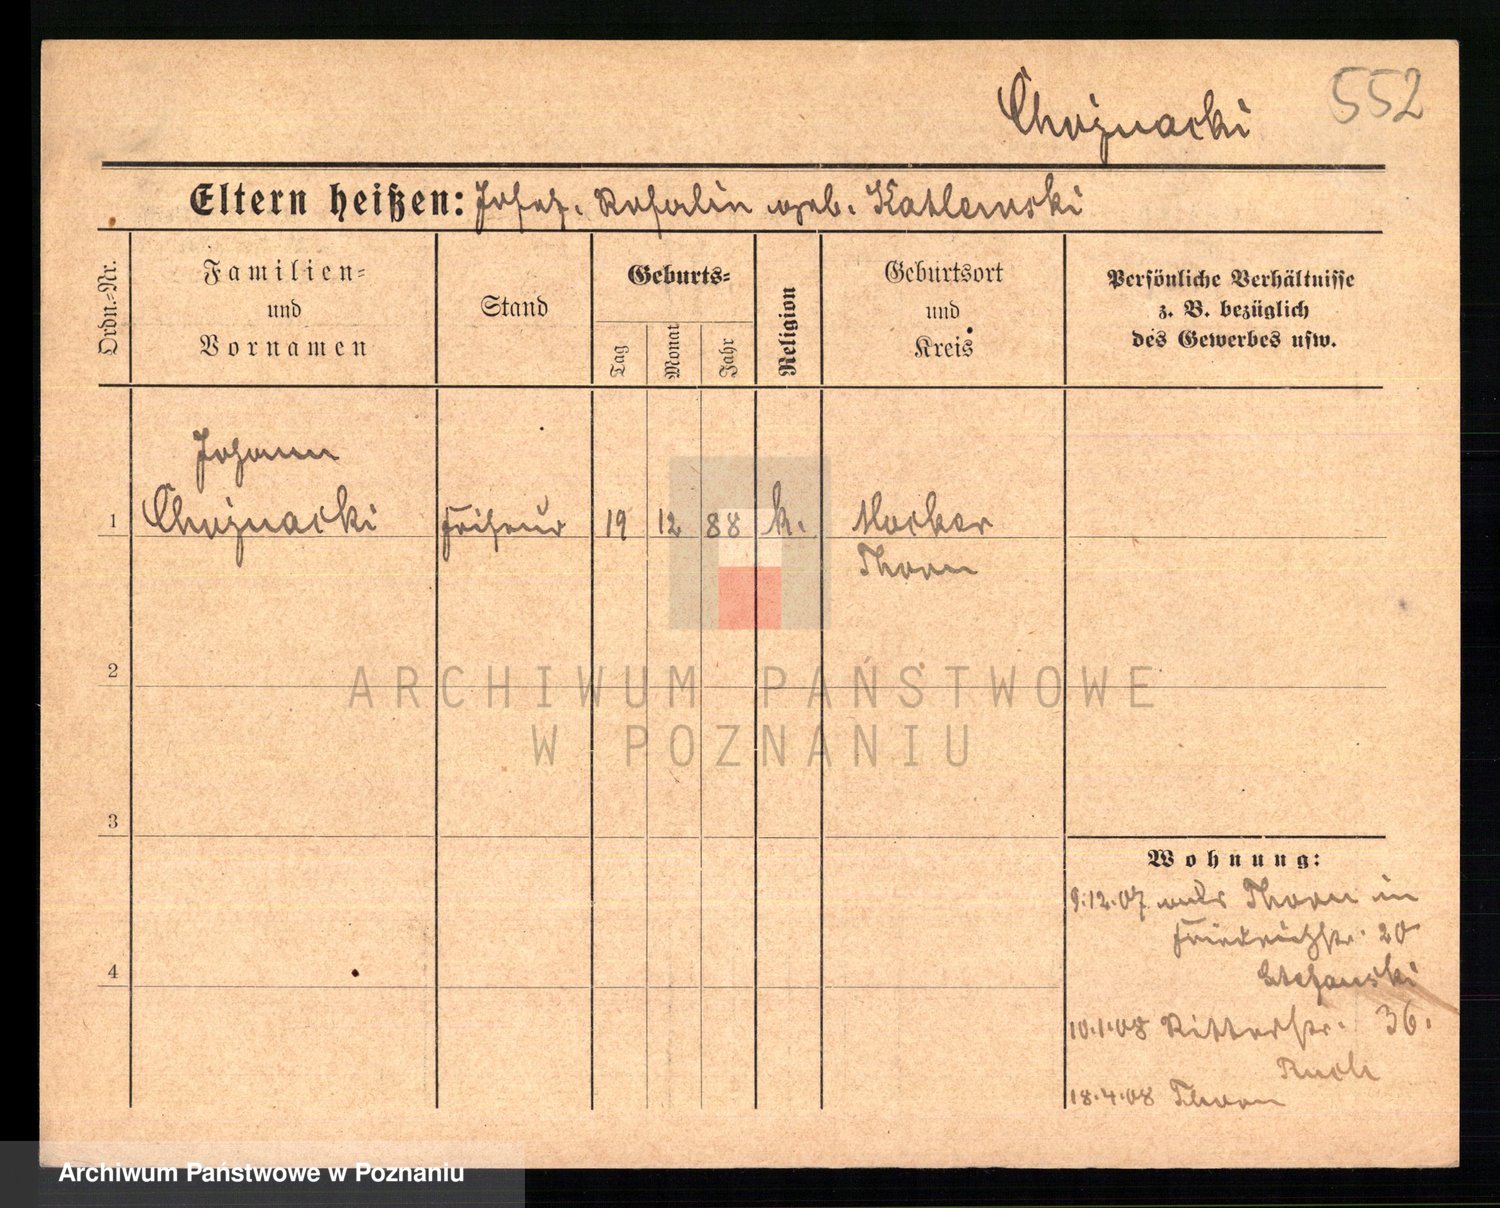 Choznacki 552
Eltern heißen: Josef, Rosalin geb. Katlewski
Ordn.-Nr.
Familien-
und
Vornamen
Stand
Geburts-
Tag
Monat
Jahr
Religion
Geburtsort
und
Kreis
Persönliche Verhältnisse
z. B. bezüglich
des Gewerbes usw.
Johann
1 Choznacki Friseur 19 12 88 k. Mocker
Thorn
2
ARCHIWUM PAŃSTWOWE
W POZNANIU
3
Wohnung:
9.12.07 aus Thorn in
Friedrichstr. 20
Stefanski
4
10.1.08 Ritterstr. 36.
18.4.08 Thorn
Archiwum Państwowe w Poznaniu